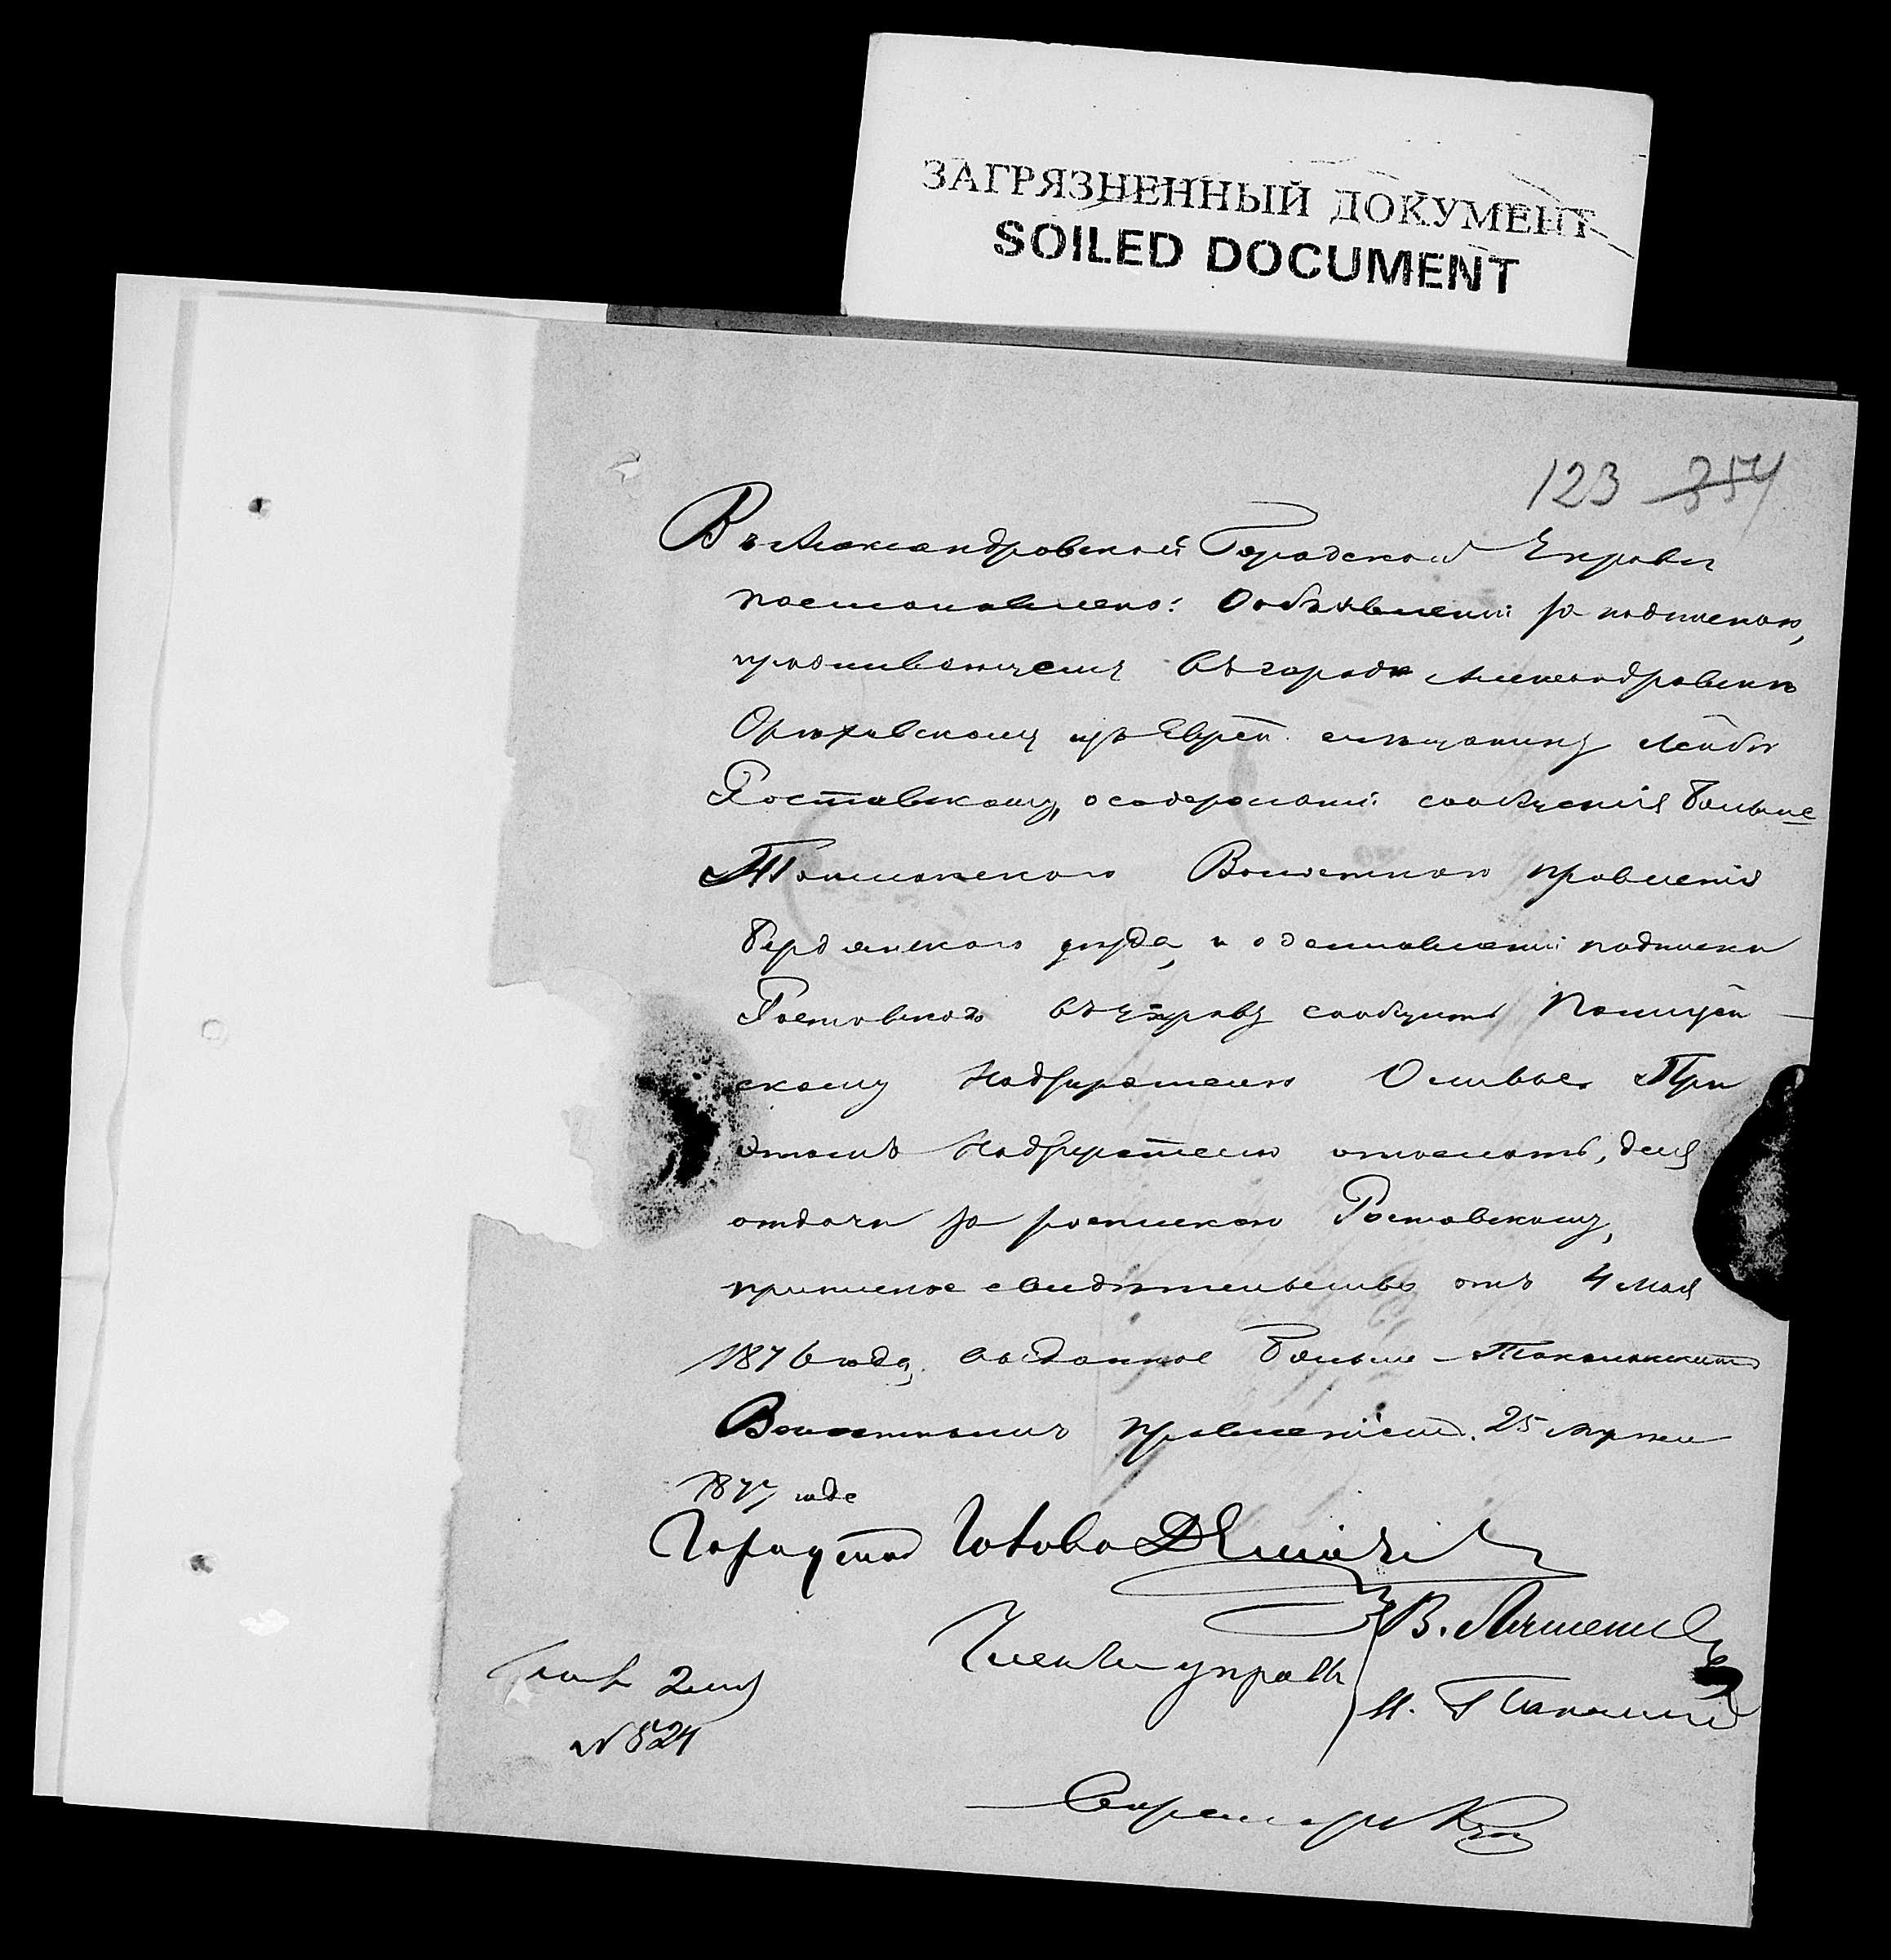 ЗАГРЯЗНЕННЫЙ ДОКУМЕНТ
SOILED DOCUMENT
123 354
Въ Александровской Городской Управѣ
постановлено: Объ объявленіи за подпискою,
проживающему въ городѣ Александровскѣ
Орѣховскому изъ Еврей мѣщанину Лейбѣ
Ростовскому, о содержаніи сообщенія Больше
Токмакского Волостного правленія
Бердянского уѣзда, и о доставленіи подписки
Ростовского въ Управу сообщить Полицей
скому Надзирателю При
этомъ Надзирателю отослать, для
отдачи за роспискою Ростовскому,
приписное свидѣтельство отъ 4 мая
1876 года, выданное Больше-Токмакскимъ
Волостнымъ правленіемъ. 25 Апрѣля
1877 года
Городской Голова
Члены управы
В.
И.
2 мая
№ 824
Секретарь